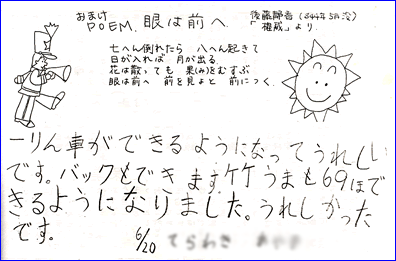 おまけ
POEM. 眼は前へ
後藤静香
「権威」より.
七へん倒れたら 八へん起きて
日が入れば 月が出る.
花は散っても 果(み)をむすぶ
眼は前へ 前を見よと 前につく.
一りん車ができるようになってうれしい
です。バックもできます竹うまも69ほで
きるようになりました。うれしかった
です。
6/20